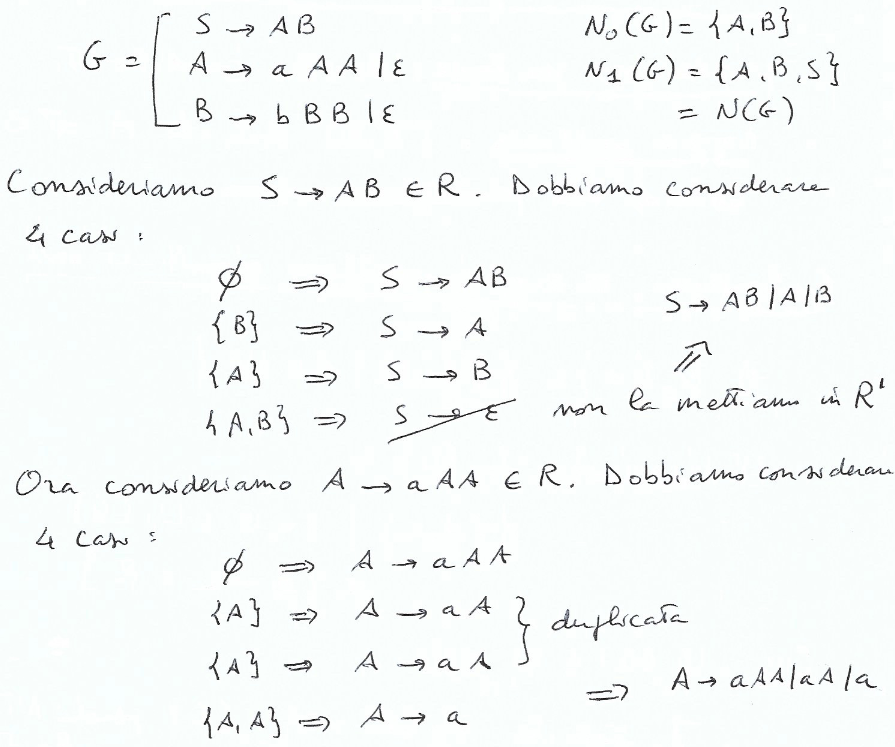 G = [ S → AB
A → a AA | ε
B → b BB | ε
N₀(G) = {A, B}
N₁(G) = {A, B, S}
= N(G)
Consideriamo S → AB ∈ R. Dobbiamo considerare
4 casi:
∅ ⇒ S → AB
{B} ⇒ S → A
{A} ⇒ S → B
{A, B} ⇒ S → ε non la mettiamo in R'
⇒ S → AB | A | B
Ora consideriamo A → a AA ∈ R. Dobbiamo considerare
4 casi:
∅ ⇒ A → a AA
{A} ⇒ A → a A
{A} ⇒ A → a A } duplicata
{A, A} ⇒ A → a
⇒ A → aAA | aA | a